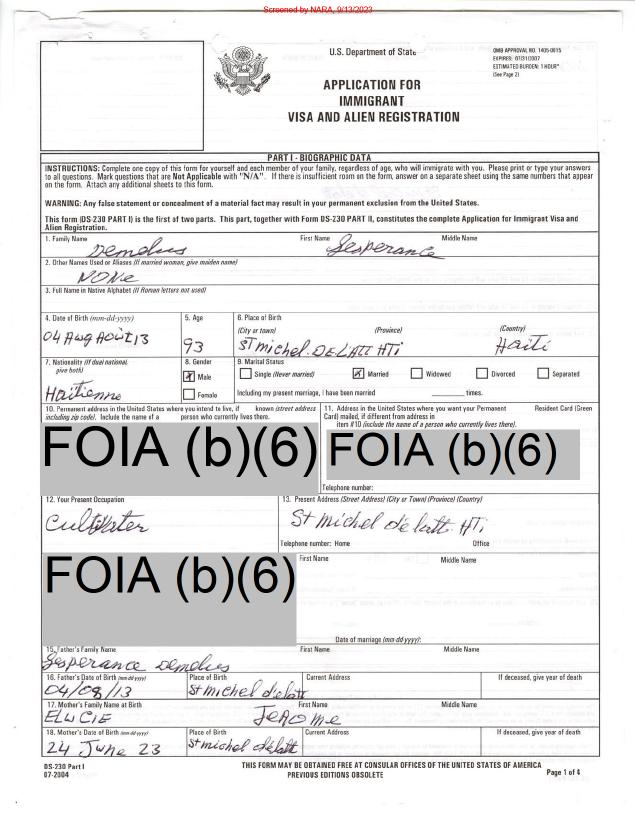 Screened by NARA, 9/13/2023
U.S. Department of State
OMB APPROVAL NO. 1405-0015
EXPIRES: 07/31/2007
ESTIMATED BURDEN: 1 HOUR*
(See Page 2)
APPLICATION FOR
IMMIGRANT
VISA AND ALIEN REGISTRATION
PART I - BIOGRAPHIC DATA
INSTRUCTIONS: Complete one copy of this form for yourself and each member of your family, regardless of age, who will immigrate with you. Please print or type your answers
to all questions. Mark questions that are Not Applicable with "N/A". If there is insufficient room on the form, answer on a separate sheet using the same numbers that appear
on the form. Attach any additional sheets to this form.
WARNING: Any false statement or concealment of a material fact may result in your permanent exclusion from the United States.
This form (DS-230 PART I) is the first of two parts. This part, together with Form DS-230 PART II, constitutes the complete Application for Immigrant Visa and
Alien Registration.
1. Family Name First Name Middle Name
Demelus Lesperance
2. Other Names Used or Aliases (If married woman, give maiden name)
NONe
3. Full Name in Native Alphabet (If Roman letters not used)
4. Date of Birth (mm-dd-yyyy) 5. Age 6. Place of Birth
(City or town) (Province) (Country)
04 Awg Août 13 93 ST michel. DE L'ATT HTi Haïti
7. Nationality (If dual national, 8. Gender 9. Marital Status
give both)
Male Single (Never married) Married Widowed Divorced Separated
Haïtienne Female Including my present marriage, I have been married ________ times.
10. Permanent address in the United States where you intend to live, if known (street address
including zip code). Include the name of a person who currently lives there.
11. Address in the United States where you want your Permanent Resident Card (Green
Card) mailed, if different from address in
item #10 (include the name of a person who currently lives there).
FOIA (b)(6) FOIA (b)(6)
Telephone number:
12. Your Present Occupation 13. Present Address (Street Address) (City or Town) (Province) (Country)
St michel de latt. HTi
Telephone number: Home Office
FOIA (b)(6)
First Name Middle Name
Date of marriage (mm-dd-yyyy):
15. Father's Family Name First Name Middle Name
Lesperance Demelus
16. Father's Date of Birth (mm-dd-yyyy) Place of Birth Current Address If deceased, give year of death
04/08/13 St michel d'elatt
17. Mother's Family Name at Birth First Name Middle Name
ELWCIE JEROMe
18. Mother's Date of Birth (mm-dd-yyyy) Place of Birth Current Address If deceased, give year of death
24 June 23 St michel delatt
DS-230 Part I
07-2004
THIS FORM MAY BE OBTAINED FREE AT CONSULAR OFFICES OF THE UNITED STATES OF AMERICA
PREVIOUS EDITIONS OBSOLETE
Page 1 of 4